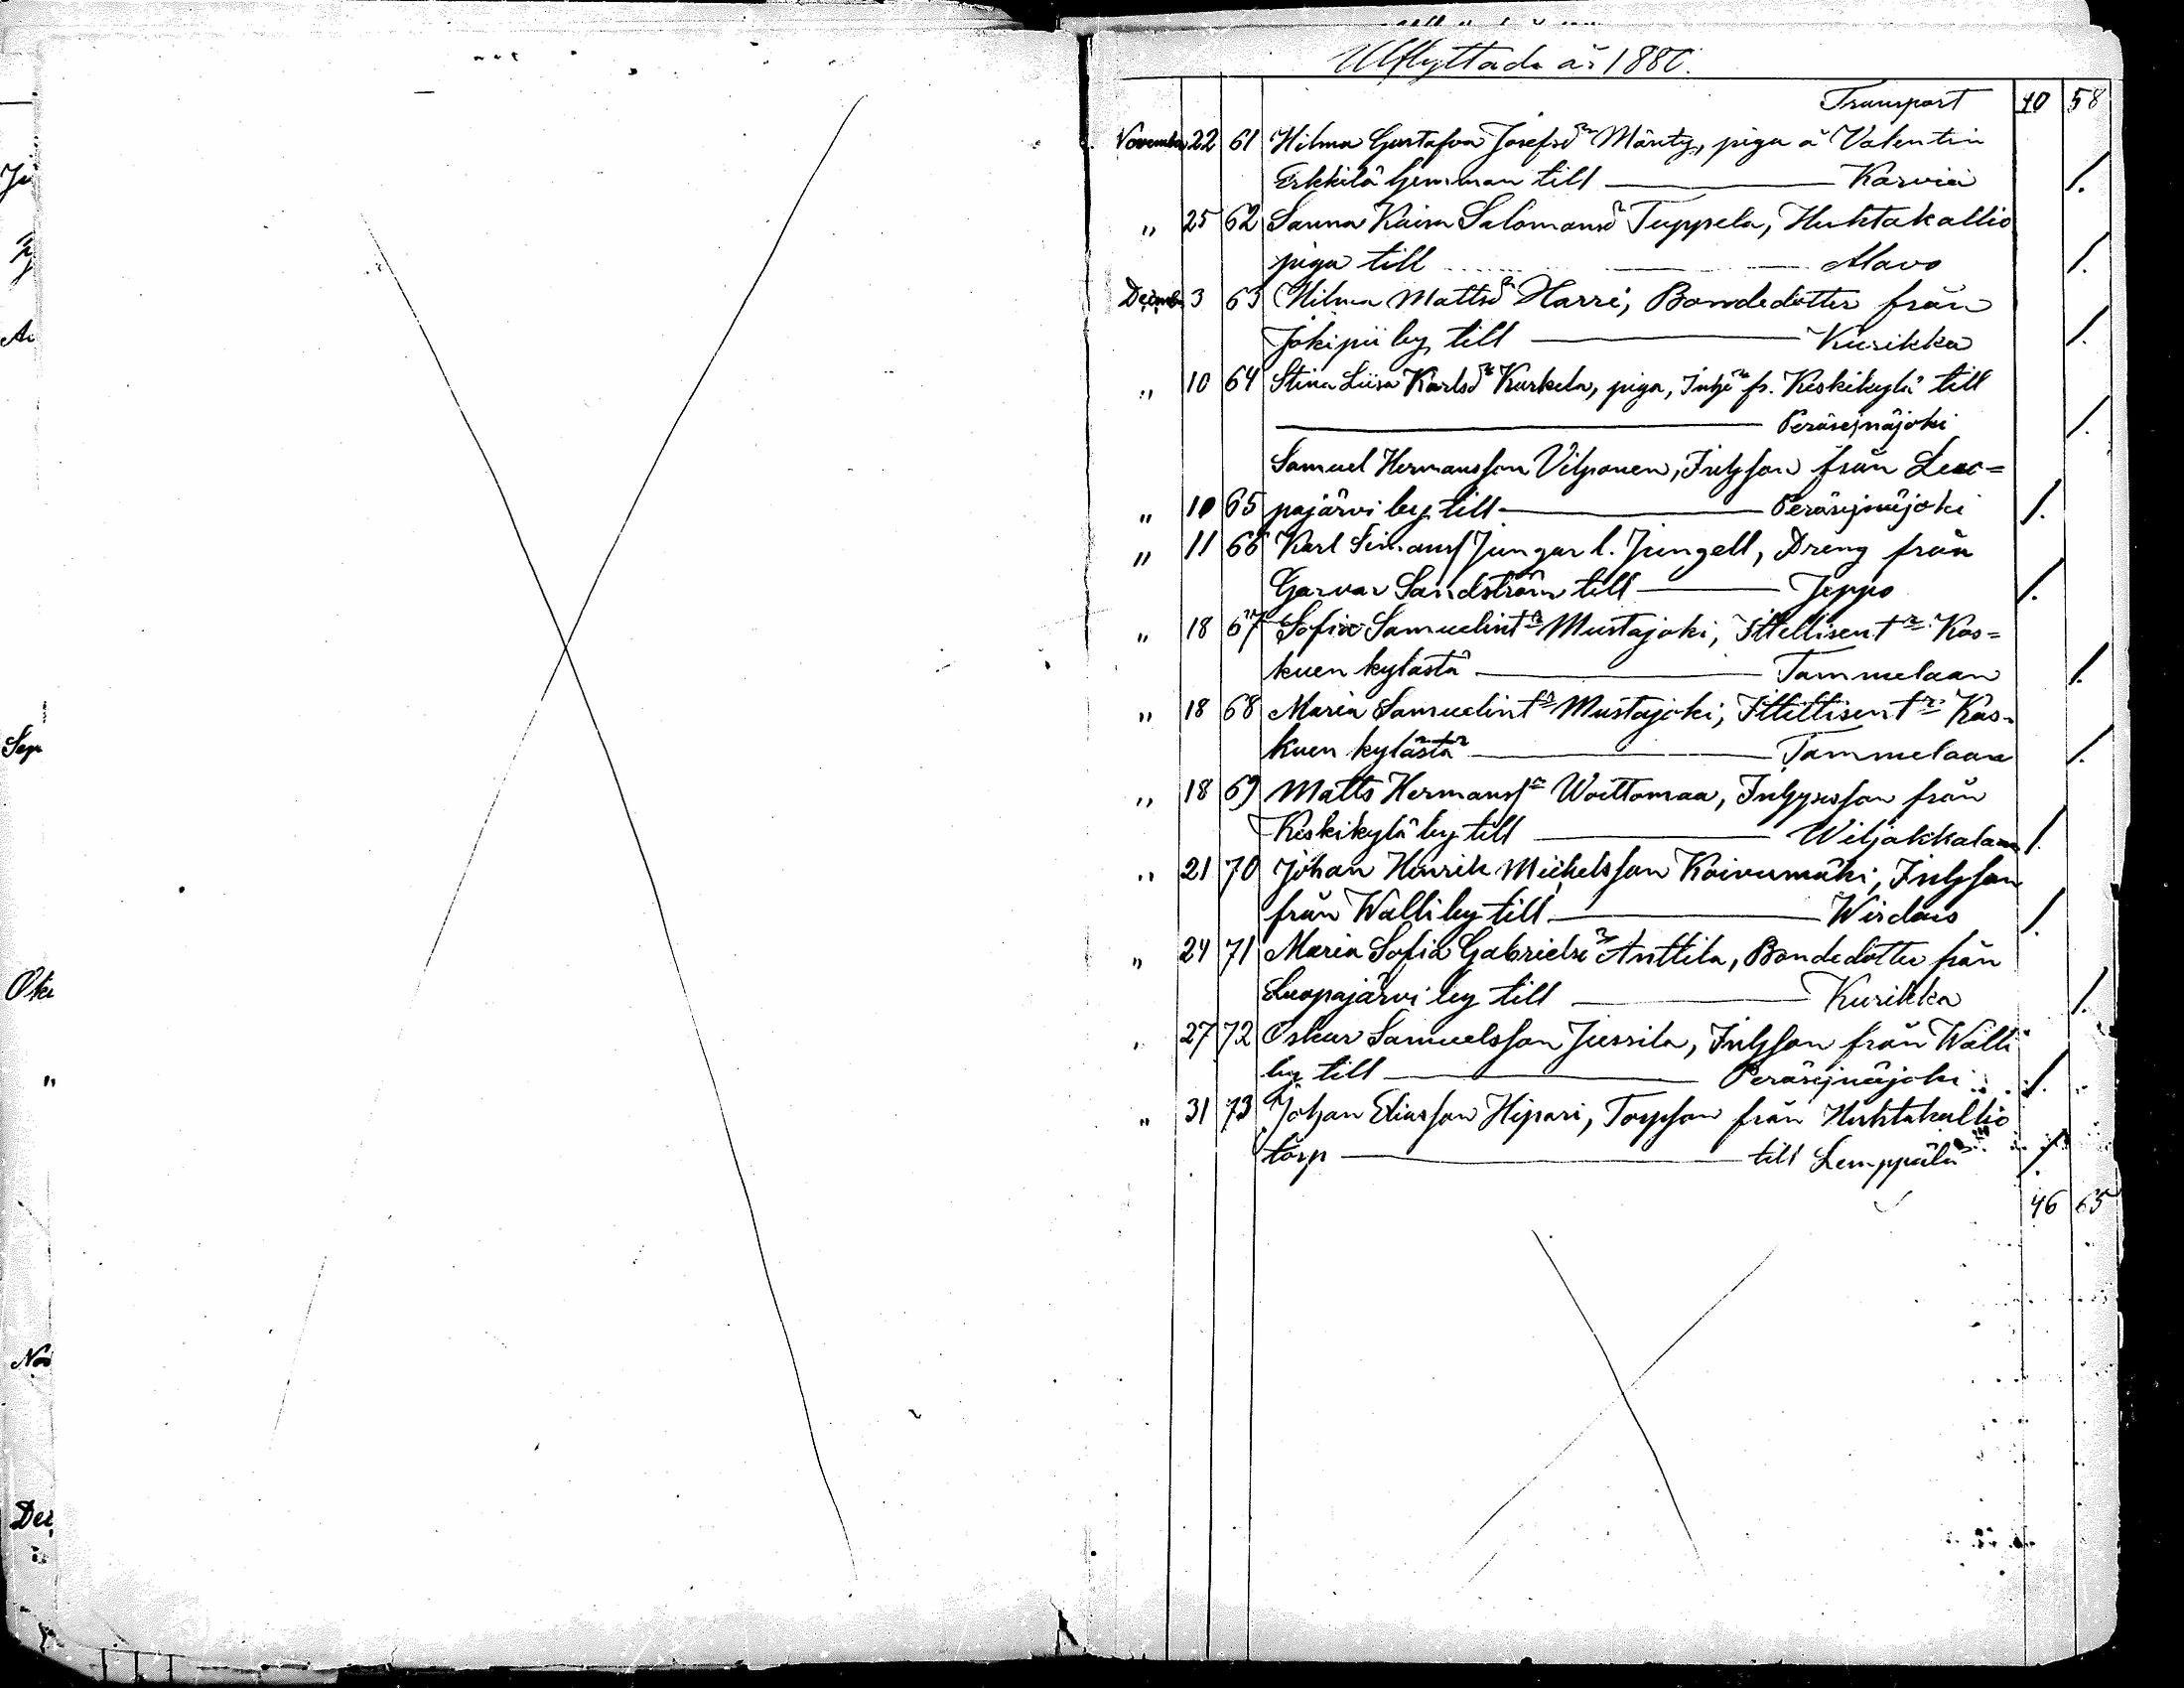 Utflyttade år 1880.
Transport 40 58
November 22 61 Hilma Gustafva Josefsdr Mänty, piga å Valentin
Erkkilä hemman till Karvia 1.
" 25 62 Sanna Kaisa Salomonsdr Tuppela, Huhtakallio
piga till Alavo 1.
Decemb. 3 63 Hilma Mattsdr Harri, Bondedotter från
Jokipii by till Kurikka 1.
" 10 64 Stina Liisa Karlsdr Kurkela, piga, fr. Keskikylä till
Peräseinäjoki 1.
Samuel Hermansson Vilponen, Inhsson från Luo=
" 10 65 pajärvi by till Peräseinäjoki 1.
" 11 66 Karl Simonss Jungar l. Jungell, Dreng från
Garvar Sandström till Jeppo 1.
" 18 67 Sofia Samuelint. Mustajoki, Itsellisent. Kos=
kuen kylästä Tammelaan 1.
" 18 68 Maria Samuelint. Mustajoki, Itsellisent. Kos=
kuen kylästä Tammelaan 1.
" 18 69 Matts Hermanss. Woittomaa, Inhysesson från
Keskikylä by till Wiljakkalaan 1.
" 21 70 Johan Henrik Michelsson Koivumäki, Inhsson
från Walli by till Wirdois 1.
" 24 71 Maria Sofia Gabrielsdr Anttila, Bondedotter från
Luopajärvi by till Kurikka 1.
" 27 72 Oskar Samuelsson Jussila, Inhsson från Walli
by till Peräseinäjoki 1.
" 31 73 Johan Eliasson Hipari, Torpson från Huhtakallio
torp till Lemppälä 1.
46 65
Sep
Okt
"
Nov
Dec